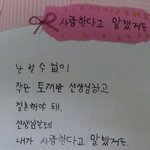 사랑한다고 말했거든
난 할 수 없이
작은 토끼반 선생님하고
결혼해야 돼.
선생님한테
내가 사랑한다고 말했거든